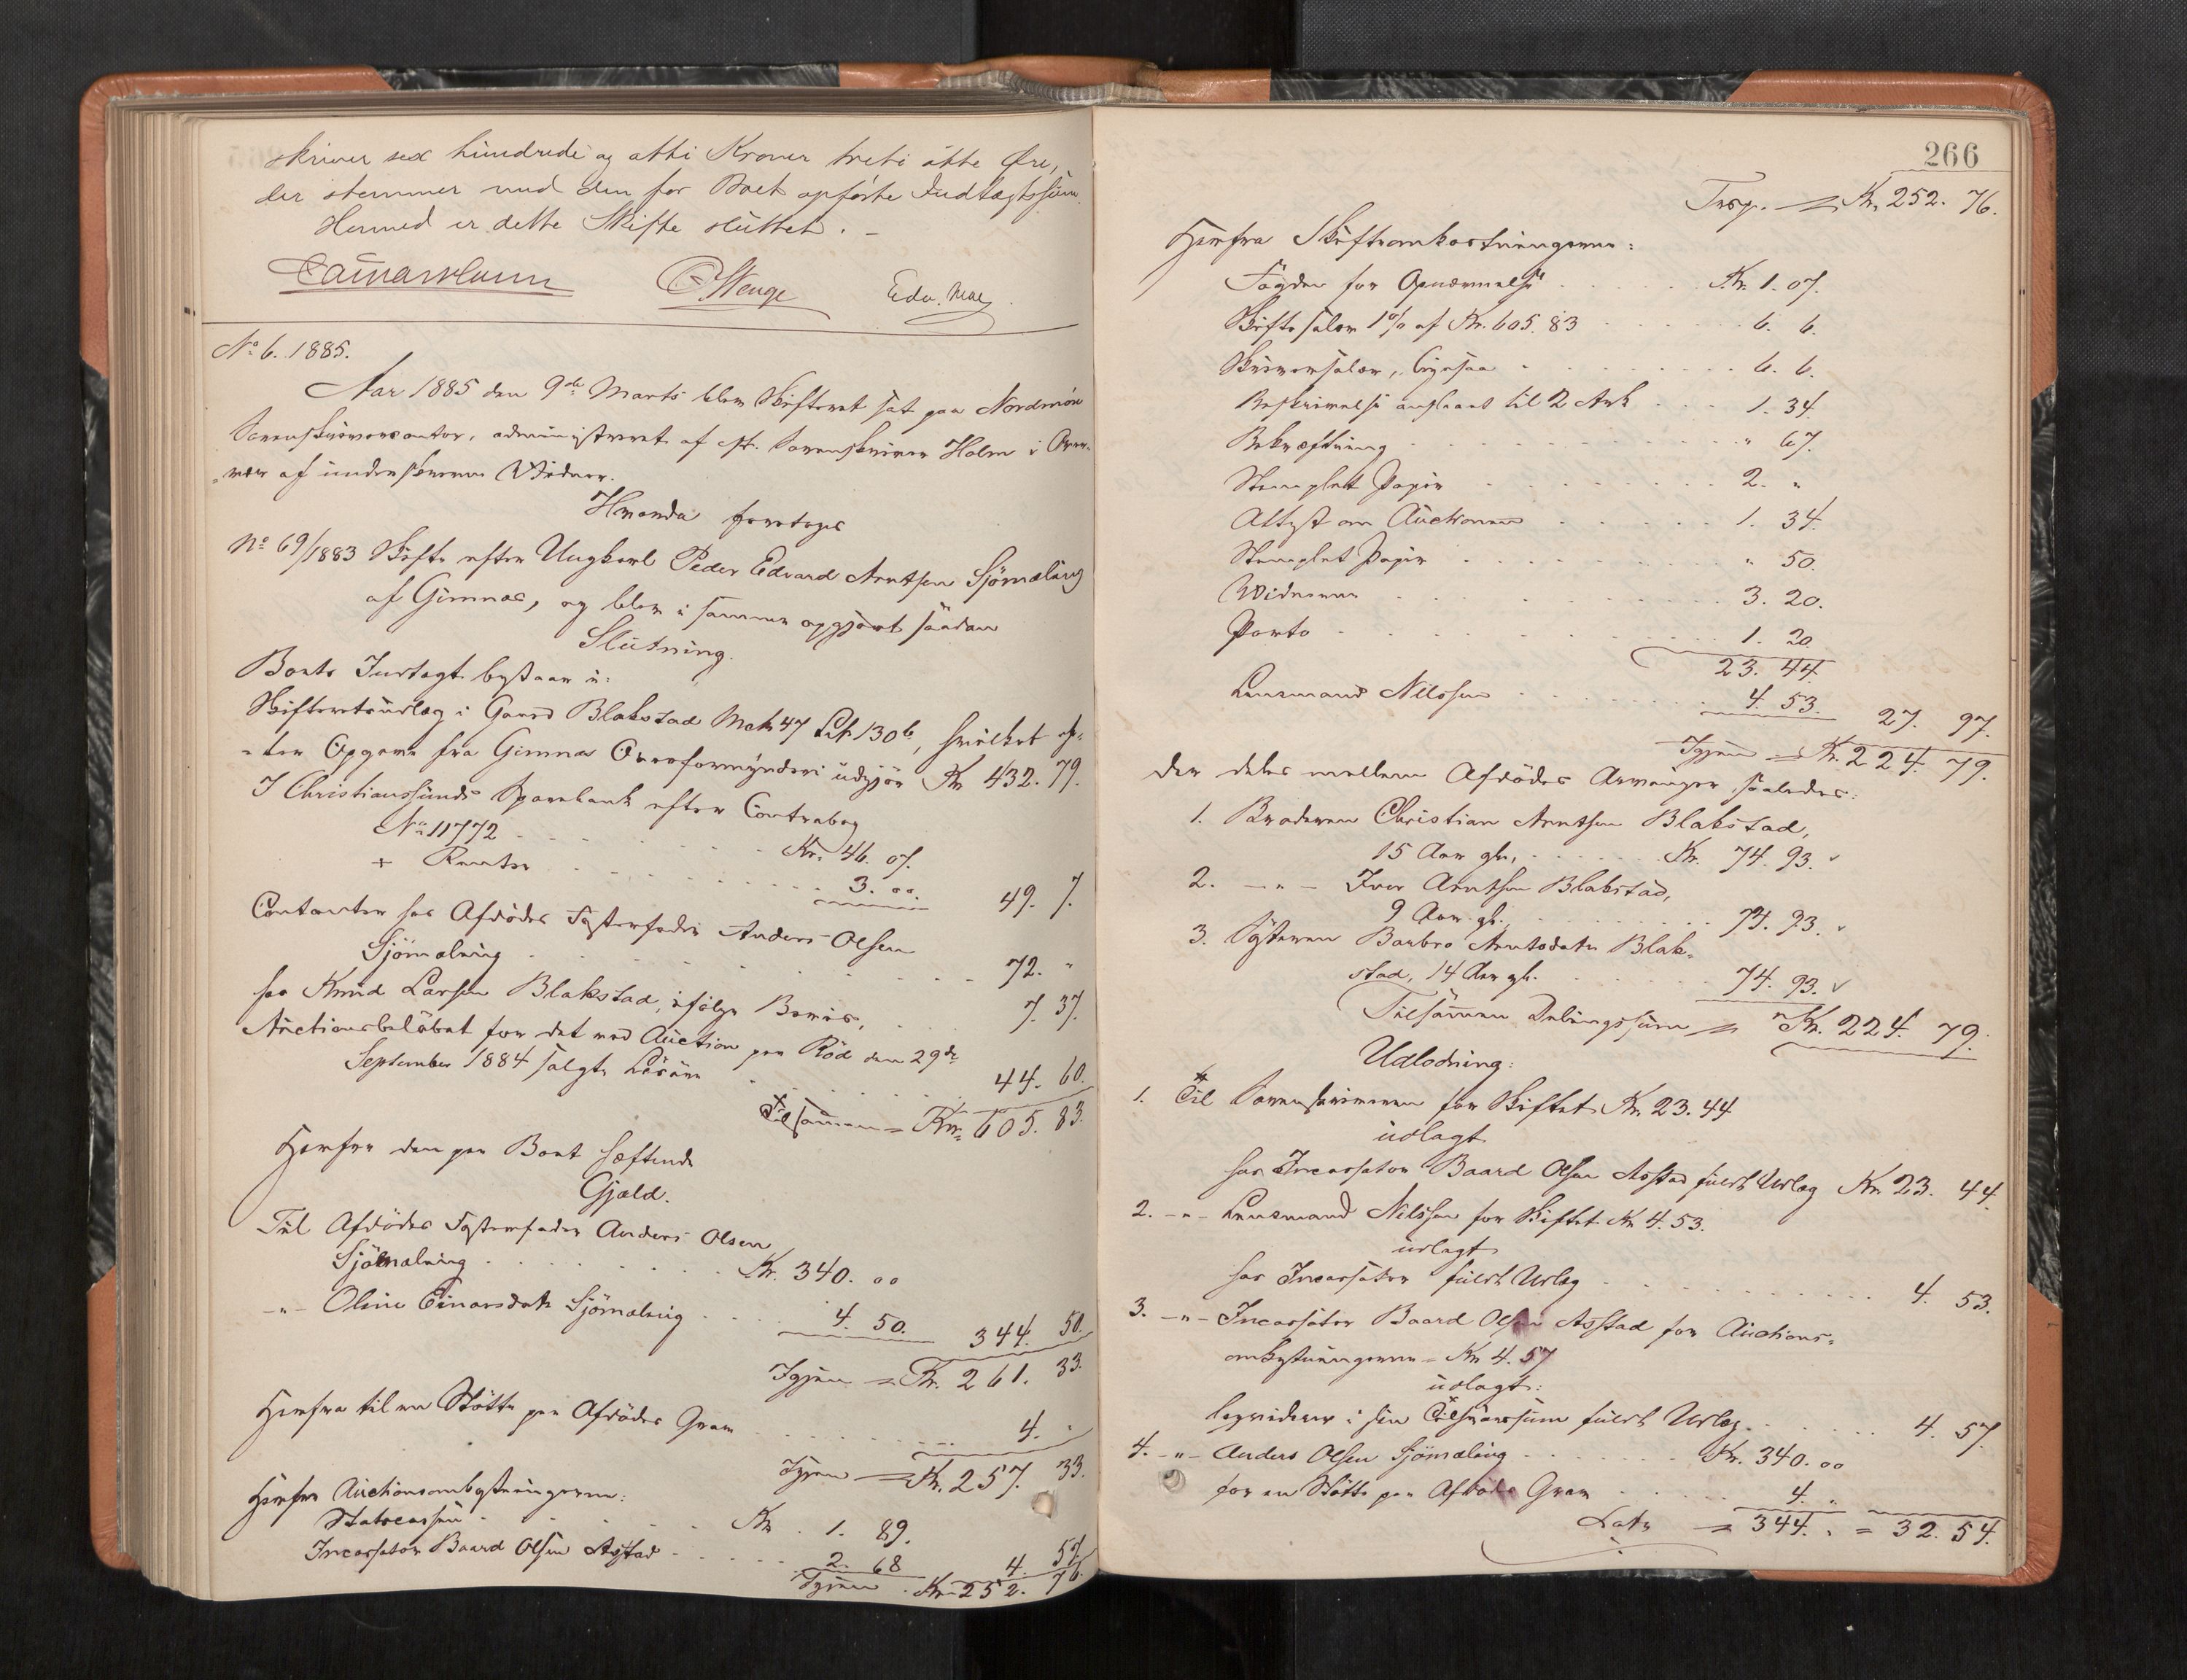 skriver sex hundrede og otti Kroner treti åtte Øre,
der stemmer med den for Boet opførte Indtægtssum.
Hermed er dette Skifte sluttet. –
CStenge Edv. Moe
No 6. 1885.
Aar 1885 den 9de Marts blev Skifteret sat paa Nordmøre
Sorenskrivercontor, administreret af cst. Sorenskriver Holm i Over-
=vær af underskrevne Vidner.
Hvorda foretoges
No 69/1883 Skifte efter Ungkarl Peder Edvard Arntsen Sjømæling
af Gimnæs, og blev i samme opgjort saadan
Slutning.
Boets Indtægt bestaar i:
Skifteretsudlæg i Gaard Blakstad Mat 47 Lit 130b, hvilket ef-
=ter Opgave fra Gimnæs Overformynderi udgjør Kr 432. 79.
I Christianssunds Sparebank efter Contrabog
No 11772 Kr. 46. 07.
+ Renter 3. 00. 49. 7.
Contanter hos Afdødes Fosterfader Anders Olsen
Sjømæling 72. "
hos Knud Larsen Blakstad, ifølge Bevis, 7. 37.
Auctionsbeløbet for det ved Auction paa Röd den 29de
September 1884 solgte Løsøre 44. 60.
Tilsammen = Kr. 605. 83.
Herfra den paa Boet hæftende
Gjæld.
Til Afdødes Fosterfader Anders Olsen
Sjømælning Kr. 340. 00
–"– Oline Einarsdatr Sjømæling 4. 50. 344. 50.
Igjen = Kr. 261. 33.
Herfra til en Støtte paa Afdødes Grav 4. "
Igjen = Kr. 257. 33.
Herfra Auctionsomkostningerne:
Statscassen Kr. 1. 89.
Incassator Baard Olsen Astad 2. 68 4. 57.
Igjen Kr. 252. 76.
266
Trsp. = Kr. 252. 76.
Herfra Skifteomkostningerne:
Fogden for Opnævnelse Kr. 1. 07.
Skiftesalær 1% af Kr. 605. 83 6. 6.
Skriversalær, ligesaa 6. 6.
Beskrivelse anslaaet til 2 Ark 1. 34.
Bekræftning " 67.
Stemplet Papir 2. "
Attest om Auctionen 1. 34.
Stemplet Papir " 50.
Vidnerne 3. 20.
Porto 1. 20.
23. 44.
Lensmand Nilssen 4. 53. 27. 97.
Igjen = Kr. 224. 79.
der deles mellem Afdødes Arvinger saaledes:
1. Broderen Christian Arntsen Blakstad,
15 Aar gl., Kr. 74. 93.
2. –"– Iver Arntsen Blakstad,
9 Aar gl. 74. 93.
3. Søsteren Barbro Arntsdatr Blak-
stad, 14 Aar gl. 74. 93.
Tilsammen Delingssum = Kr. 224. 79.
Udlodning:
1. Til Sorenskriveren for Skiftet Kr 23. 44
udlagt
hos Incassator Baard Olsen Astad fuldt Udlæg Kr 23. 44.
2. –"– Lensmand Nilssen for Skiftet Kr 4. 53.
udlagt
hos Incassator fuldt Udlæg 4. 53.
3. –"– Incassator Baard Olsen Astad for Auctions-
omkostningerne = Kr 4. 57
udlagt:
liqviderer i sin Tilsvarssum fuldt Udlæg 4. 57.
4. –"– Anders Olsen Sjømæling Kr. 340. 00
for en Støtte paa Afdødes Grav 4. "
Lats = 344. " = 32. 54.